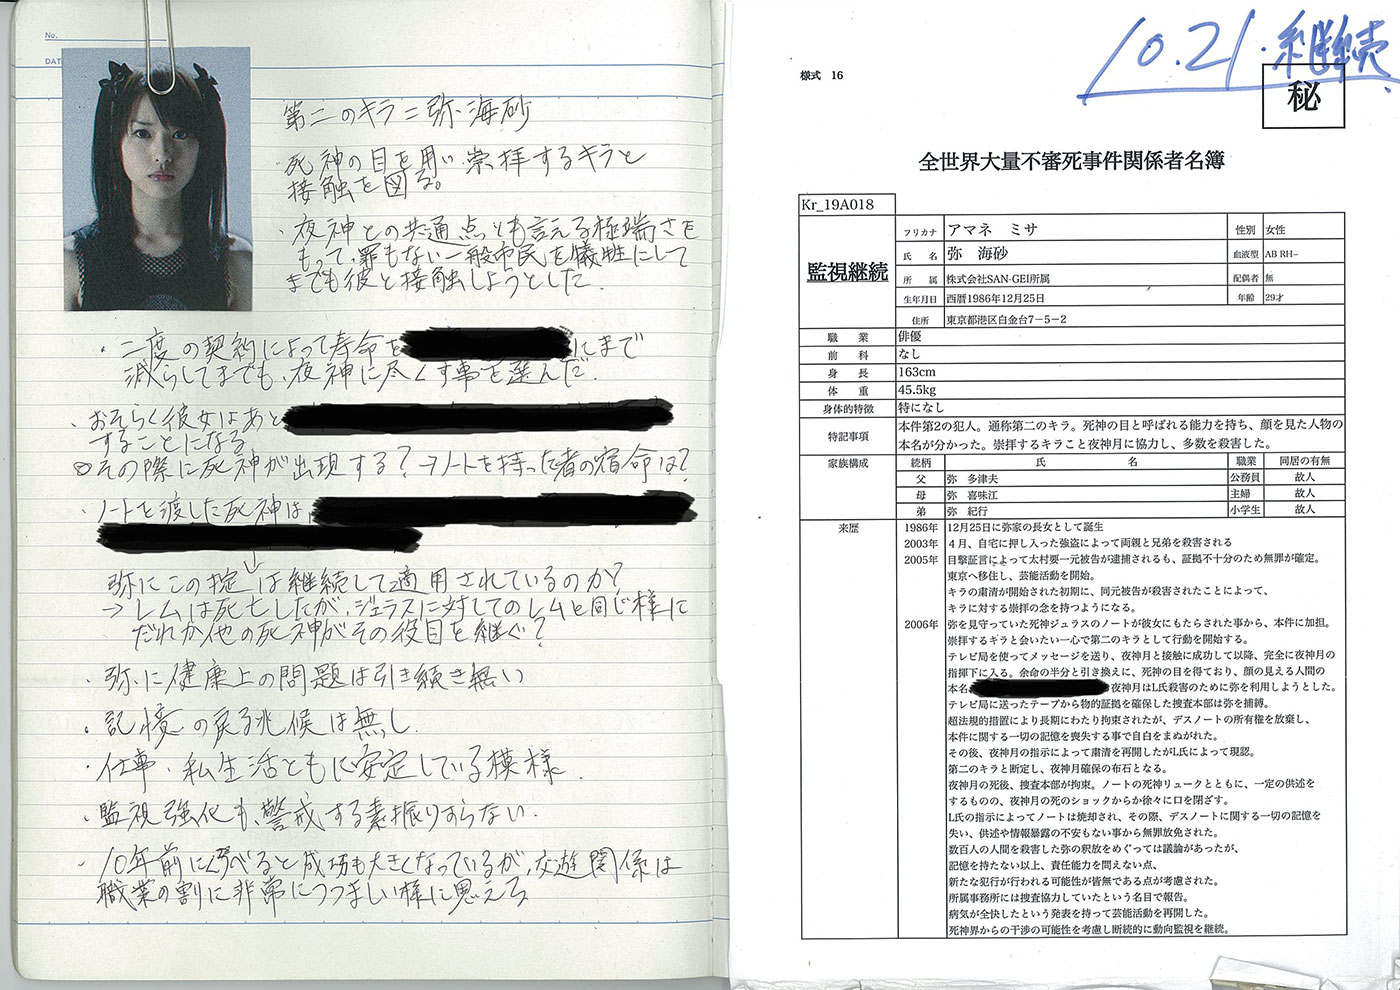 No.
DATE
第二のキラ=弥海砂
死神の目を用い崇拝するキラと
接触を図る。
・夜神との共通点とも言える極端さを
もって、罪もない一般市民を犠牲にして
までも彼と接触しようとした.
・二度の契約によって寿命を にまで
減らしてまでも、夜神に尽くす事を選んだ.
・おそらく彼女はあと
することになる
○その際に死神が出現する?→ノートを持った者の宿命は?
・ノートを渡した死神は、
↓
弥にこの掟は継続して適用されているのか?
→レムは死亡したが、ジェラスに対してのレムと同じ様に
だれか他の死神がその役目を継ぐ?
・弥に健康上の問題は引き続き無い
・記憶の戻る兆候は無し.
・仕事・私生活ともに安定している模様.
・監視強化も、警戒する素振りすらない.
・10年前に比べると成功も大きくなっているが、交遊関係は
職業の割に非常につつましい様に思える
10.21.継続
様式 16
秘
全世界大量不審死事件関係者名簿
Kr_19A018
監視継続
フリカナ アマネ ミサ 性別 女性
氏 名 弥 海砂 血液型 AB RH−
所 属 株式会社SAN-GEI所属 配偶者 無
生年月日 西暦1986年12月25日 年齢 29才
住所 東京都港区白金台7−5−2
職 業 俳優
前 科 なし
身 長 163cm
体 重 45.5kg
身体的特徴 特になし
特記事項 本件第2の犯人。通称第二のキラ。死神の目と呼ばれる能力を持ち、顔を見た人物の
本名が分かった。崇拝するキラこと夜神月に協力し、多数を殺害した。
家族構成 続柄 氏 名 職業 同居の有無
父 弥 多津夫 公務員 故人
母 弥 喜味江 主婦 故人
弟 弥 紀行 小学生 故人
来歴 1986年 12月25日に弥家の長女として誕生
2003年 4月、自宅に押し入った強盗によって両親と兄弟を殺害される
2005年 目撃証言によって太村要一元被告が逮捕されるも、証拠不十分のため無罪が確定。
東京へ移住し、芸能活動を開始。
キラの粛清が開始された初期に、同元被告が殺害されたことによって、
キラに対する崇拝の念を持つようになる。
2006年 弥を見守っていた死神ジュラスのノートが彼女にもたらされた事から、本件に加担。
崇拝するギラと会いたい一心で第二のキラとして行動を開始する。
テレビ局を使ってメッセージを送り、夜神月と接触に成功して以降、完全に夜神月の
指揮下に入る。余命の半分と引き換えに、死神の目を得ており、顔の見える人間の
本名 夜神月はL氏殺害のために弥を利用しようとした。
テレビ局に送ったテープから物的証拠を確保した捜査本部は弥を捕縛。
超法規的措置により長期にわたり拘束されたが、デスノートの所有権を放棄し、
本件に関する一切の記憶を喪失する事で自白をまぬがれた。
その後、夜神月の指示によって粛清を再開したがL氏によって現認。
第二のキラと断定し、夜神月確保の布石となる。
夜神月の死後、捜査本部が拘束。ノートの死神リュークとともに、一定の供述を
するものの、夜神月の死のショックからか徐々に口を閉ざす。
L氏の指示によってノートは焼却され、その際、デスノートに関する一切の記憶を
失い、供述や情報暴露の不安もない事から無罪放免された。
数百人の人間を殺害した弥の釈放をめぐっては議論があったが、
記憶を持たない以上、責任能力を問えない点、
新たな犯行が行われる可能性が皆無である点が考慮された。
所属事務所には捜査協力していたという名目で報告。
病気が全快したという発表を持って芸能活動を再開した。
死神界からの干渉の可能性を考慮し断続的に動向監視を継続。